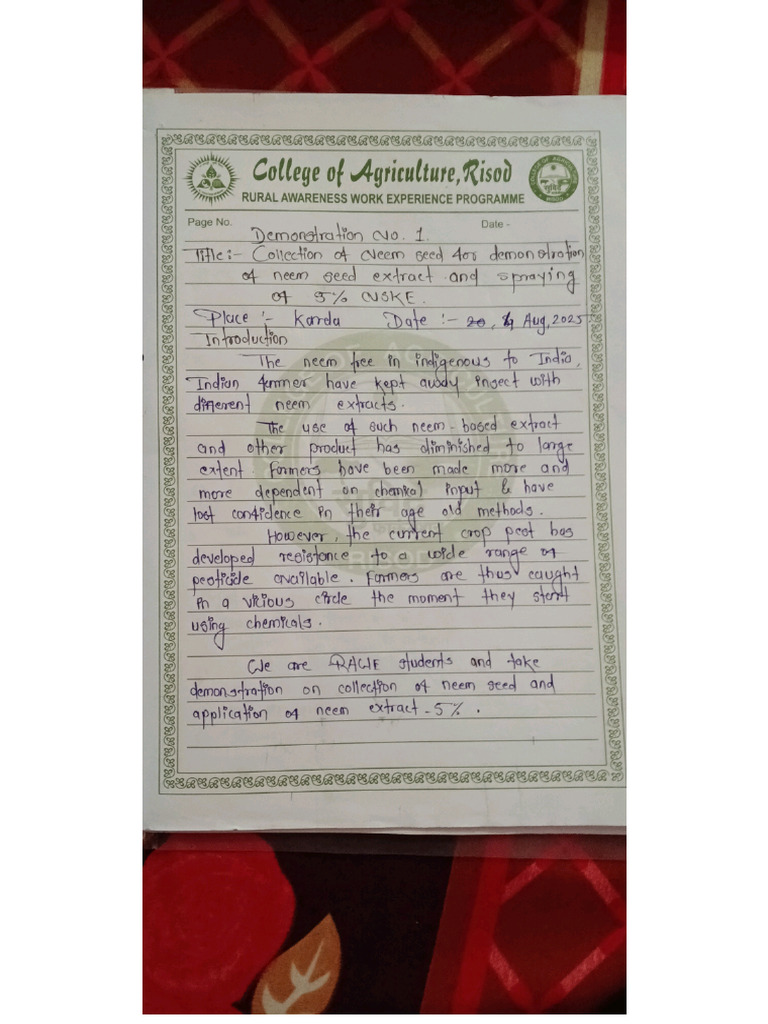 College of Agriculture, Risod
RURAL AWARENESS WORK EXPERIENCE PROGRAMME
Page No. Date -
Demonstration No. 1.
Title:- Collection of Neem seed for demonstration
of neem seed extract and spraying
of 5% NSKE.
Place :- Karda Date :- Aug, 2025
Introduction
The neem tree in indigenous to India,
Indian farmer have kept away insect with
different neem extracts.
The use of such neem-based extract
and other product has diminished to large
extent farmers have been made more and
more dependent on chemical input & have
lost confidence in their age old methods.
However, the current crop pest has
developed resistance to a wide range of
pesticide available. Farmers are thus caught
in a vicious circle the moment they start
using chemicals.
We are RAWE students and take
demonstration on collection of neem seed and
application of neem extract - 5%.
RISOD